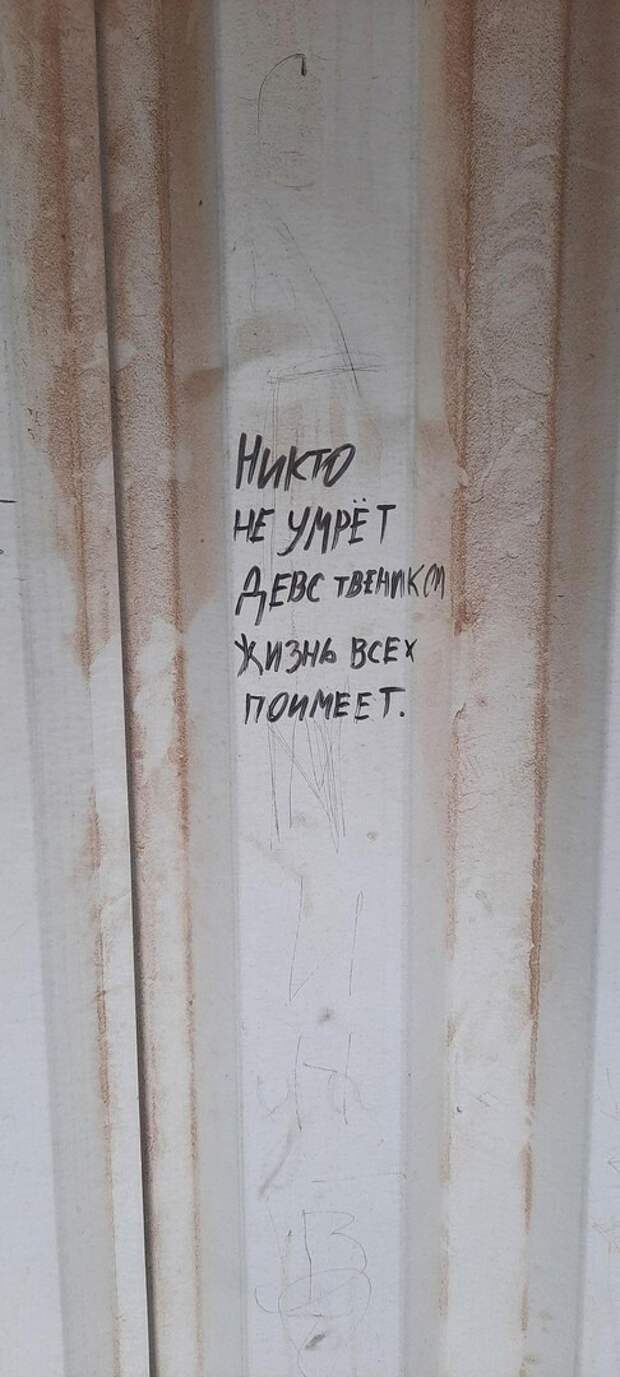 НИКТО
НЕ УМРЁТ
ДЕВСТВЕНИКОМ
ЖИЗНЬ ВСЕХ
ПОИМЕЕТ.